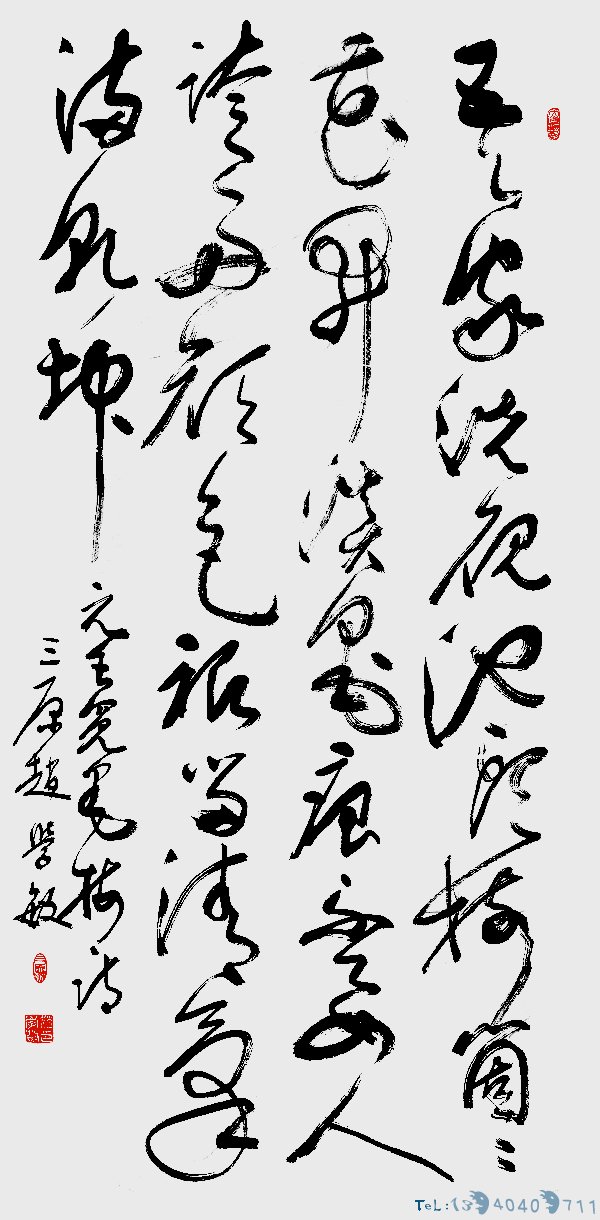 吾家洗砚池头树箇々
花开淡墨痕不要人
誇好颜色祇留清气
满乾坤
元王冕墨梅诗
三原赵学敏
TeL: